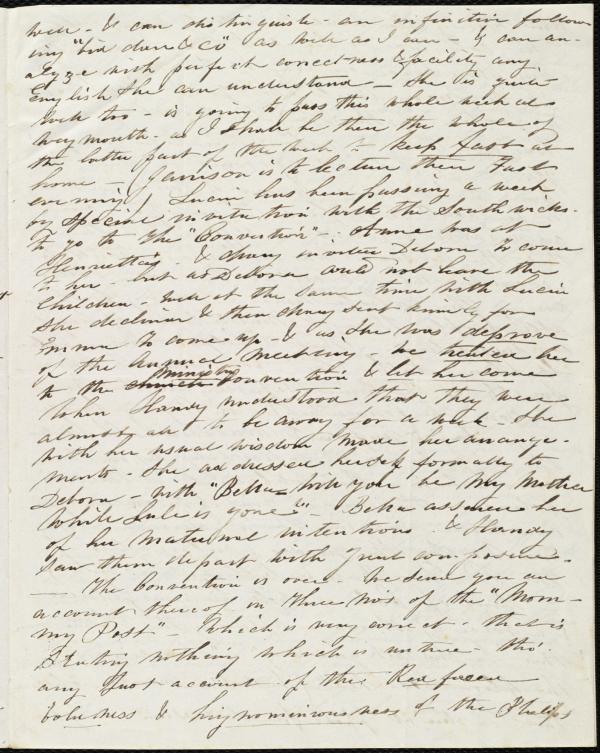 well - & can distinguish - an infinitive follow-
ing "bid dare &c" as well as I can - & can an-
alyze with perfect correctness & facility any
English she can understand - She is quite
well too - is going to pass this whole week at
Weymouth - as I shall be there the whole of
the latter part of the week - to keep fast at
home - Garrison is to lecture there Fast
evening! Lucia has been passing a week
by special invitation with the Southwicks -
to go to the "Convention" - Anne was at
Henrietta's & Mary invited Debora to come
to her - but as Debora could not leave the
children - well at the same time with Lucia
she declined & then Mary sent kindly for
Emma to come up - & as she was deprived
of the annual meeting - we treated her
to the Ministry convention & let her come
When Handy understood that they were
almost all to be away for a week - She
with her usual wisdom made her arrange-
ments - She addressed herself formally to
Debora - with "Bella will you be my Mother
while Lule is gone?" - Bella assured her
of her maternal intentions & Handy
saw them depart with great composure.
- The Convention is over - We send you an
account thereof in three No's of the "Morn-
ing Post" - Which is very correct - that is
stating nothing which is untrue - tho'
any just account of the Red faced
boldness & of the Phelps